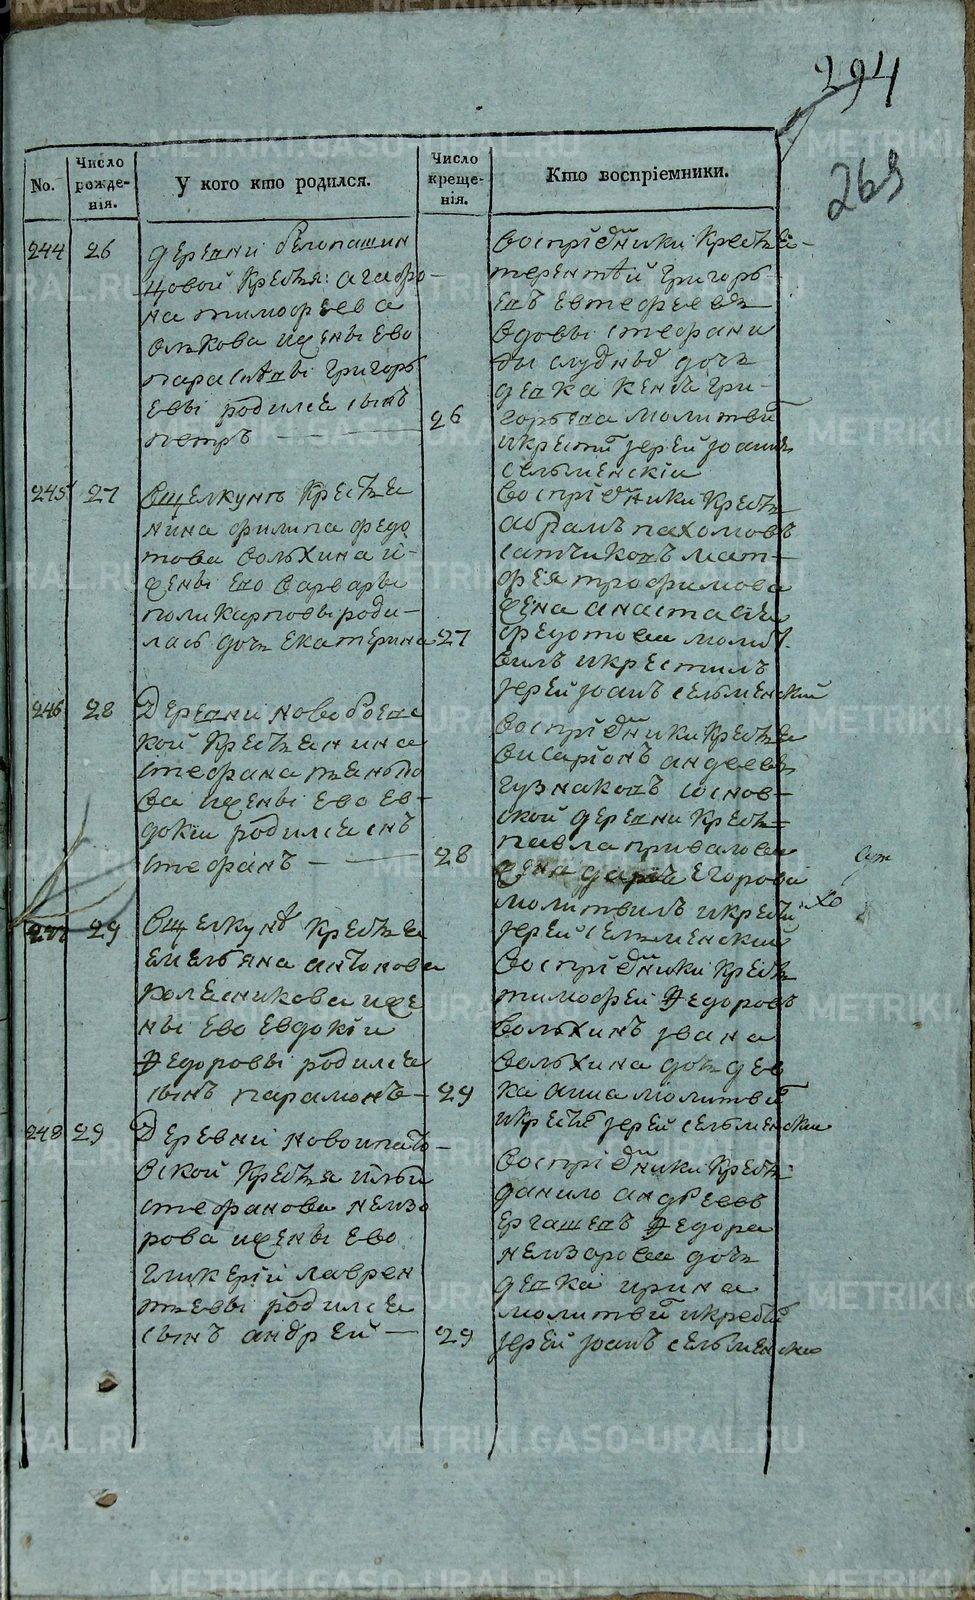 294
269
No.
Число рожденія.
У кого кто родился.
Число крещенія.
Кто воспріемники.
244 26
деревни белопашин
цовой крестья: агафо
на тимофеева
волкова ижены ево
параскѣвы григорь
евы родился сынъ
петръ
26
воспріемники крестья
терентѣй григорь
евъ евтефеевъ
вдовы стефани
ды
дочь
девка
гри
горьева молитви
икрести іерей іоаннъ
сельменскіи
245 27
вщелкунъ крестья
нина филипа федо
това вольхина и
жены ево варвары
поликарповы роди
лась дочь екатерина
27
воспріемники крестья
абрамъ пахомовъ
мат
фея трофимова
жена анастасия
федотова молит
вилъ икрестилъ
іерей іоанъ сельменский
246 28
Деревни новобоевс
кой крестьянина
стефана
ва ижены ево ев
докіи родился сынъ
стефанъ
28
воспріемники крестья
висаріонъ андеевъ
гузнаковъ соснов
ской деревни крестья
павла привалова
жена дарья егорова
молитвилъ икрести
іерей сельменский
247 29
вщелкунѣ крестья
емельяна антонова
колесникова иже
ны ево евдокіи
Федоровы родился
сынъ парамонъ
29
воспріемники крестья
тимофей Федоровъ
вольхинъ ивана
вольхина дочь дев
ка анна молитви
икрести іерей сельменскии
248 29
Деревни новоипато
вской крестья ильи
стефанова нелзо
рова ижены ево
гликеріи лаврен
тьевы родился
сынъ андрей
29
воспріемники крестья
данило андреевъ
ергашевъ Федора
нелзарова дочь
девка ирина
молитви икрести
іерей іоанъ сельменски